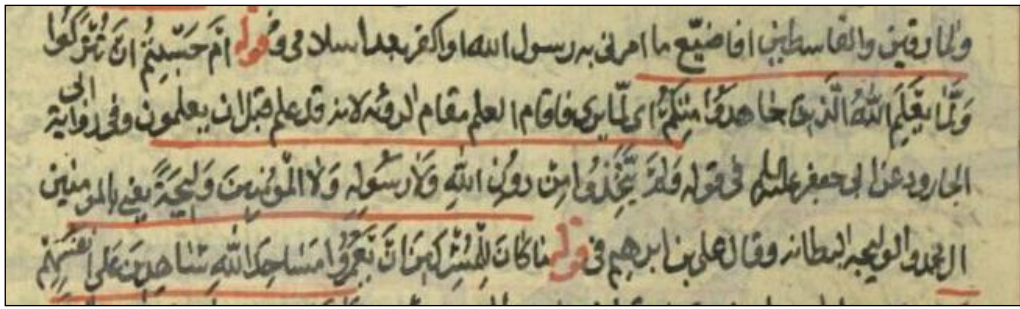 والمارقين والقاسطين افاضيّع ما امرنى به رسول الله او اكفر بعد اسلامى وقوله اَمْ حَسِبْتُمْ اَنْ تُتْرَكُوا
وَلَمَّا يَعْلَمِ اللهُ الَّذينَ جَاهَدُوْا مِنْكُمْ اى لمّا يرى فاقام العلم مقام الرؤية لانه قد علم قبل ان يعلمون وفى رواية ابى
الجارود عن ابى جعفر عليه السلم فى قوله وَلَمْ يَتَّخِذُوا مِنْ دُونِ اللهِ وَلَا رَسُولِهِ وَلَا الْمُؤْمِنِينَ وَلِيجَةً يعنى بالمومنين
ال محمد والوليجه البطانه وقال على بن ابرهيم فى قوله مَا كَانَ لِلْمُشْرِكِينَ اَنْ يَعْمُرُوا مَسَاجِدَ اللهِ شَاهِدِينَ عَلَى اَنْفُسِهِمْ